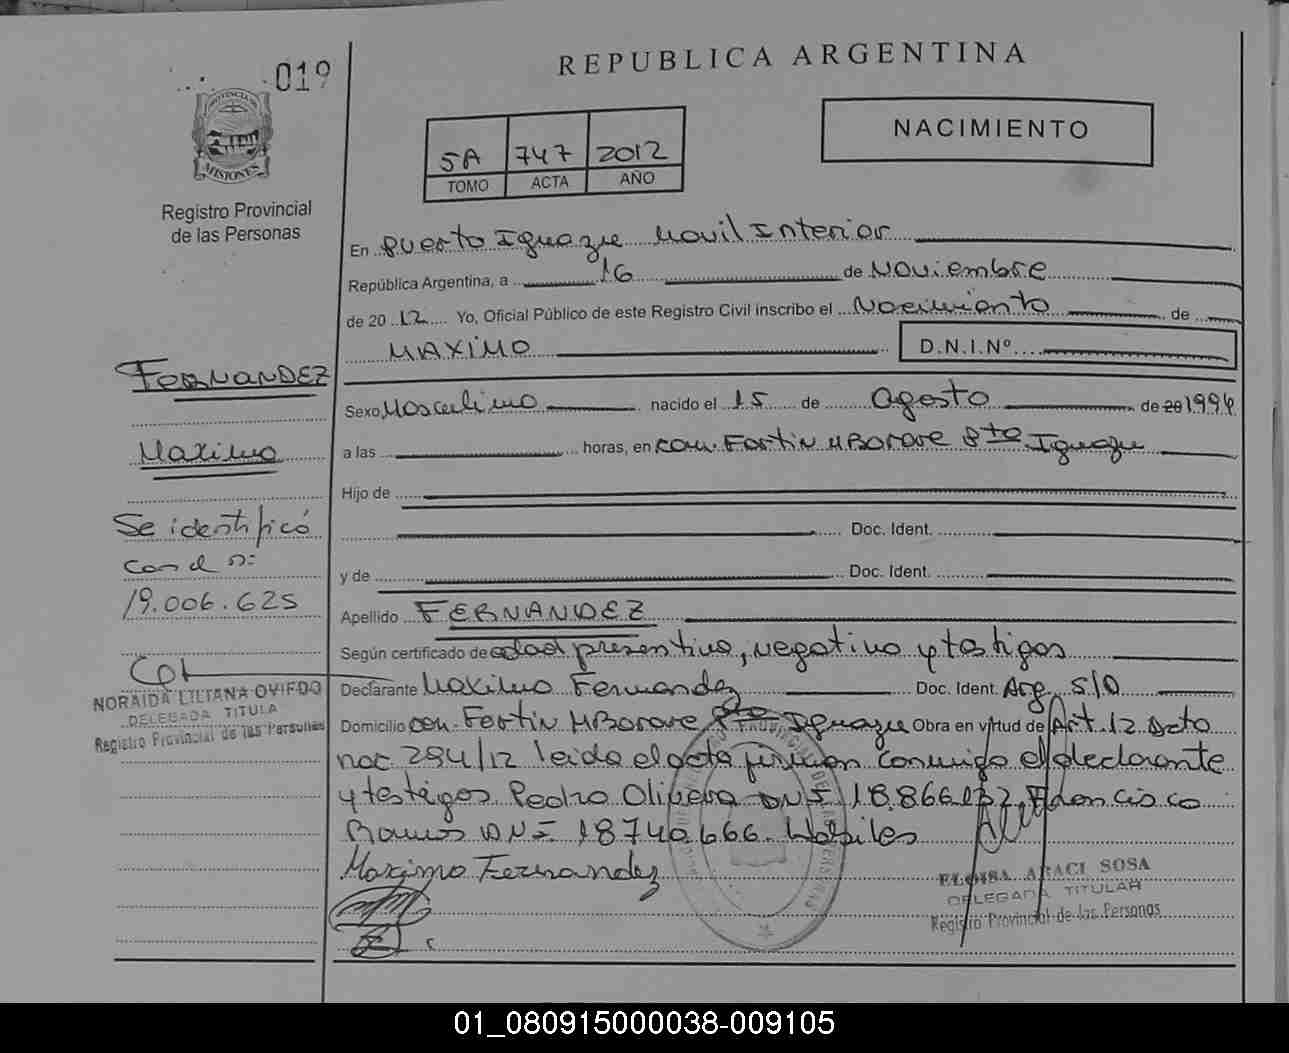 019
REPUBLICA ARGENTINA
PROVINCIA DE
MISIONES
Registro Provincial
de las Personas
5A 747 2012
TOMO ACTA AÑO
NACIMIENTO
En Puerto Iguazu Movil Interior
República Argentina, a 16 de Noviembre
de 2012 Yo, Oficial Público de este Registro Civil inscribo el Nacimiento de
MAXIMO D.N.I.Nº
Sexo Masculino nacido el 15 de Agosto de 20 1994
a las horas, en com. Fortin MBorore Pto Iguazu
Hijo de
Doc. Ident.
y de Doc. Ident.
Apellido FERNANDEZ
Según certificado de edad presentivo, negativo y testigos
Declarante Maximo Fernandez Doc. Ident. Arg. S/D
Domicilio com. Fortin MBorore Pto Iguazu Obra en virtud de Art. 12 Dcto
nac 294/12 leida el acta firman conmigo el declarante
y testigos Pedro Olivera DNI 18.866
Ramos DNI 18740666. Habiles
Maximo Fernandez
ELOISA ARACI SOSA
DELEGADA TITULAR
Registro Provincial de las Personas
FERNANDEZ
Maximo
Se identificó
con d n:
19.006.625
NORAIDA LILIANA OVIEDO
DELEGADA TITULA
Registro Provincial de las Personas
01_080915000038-009105